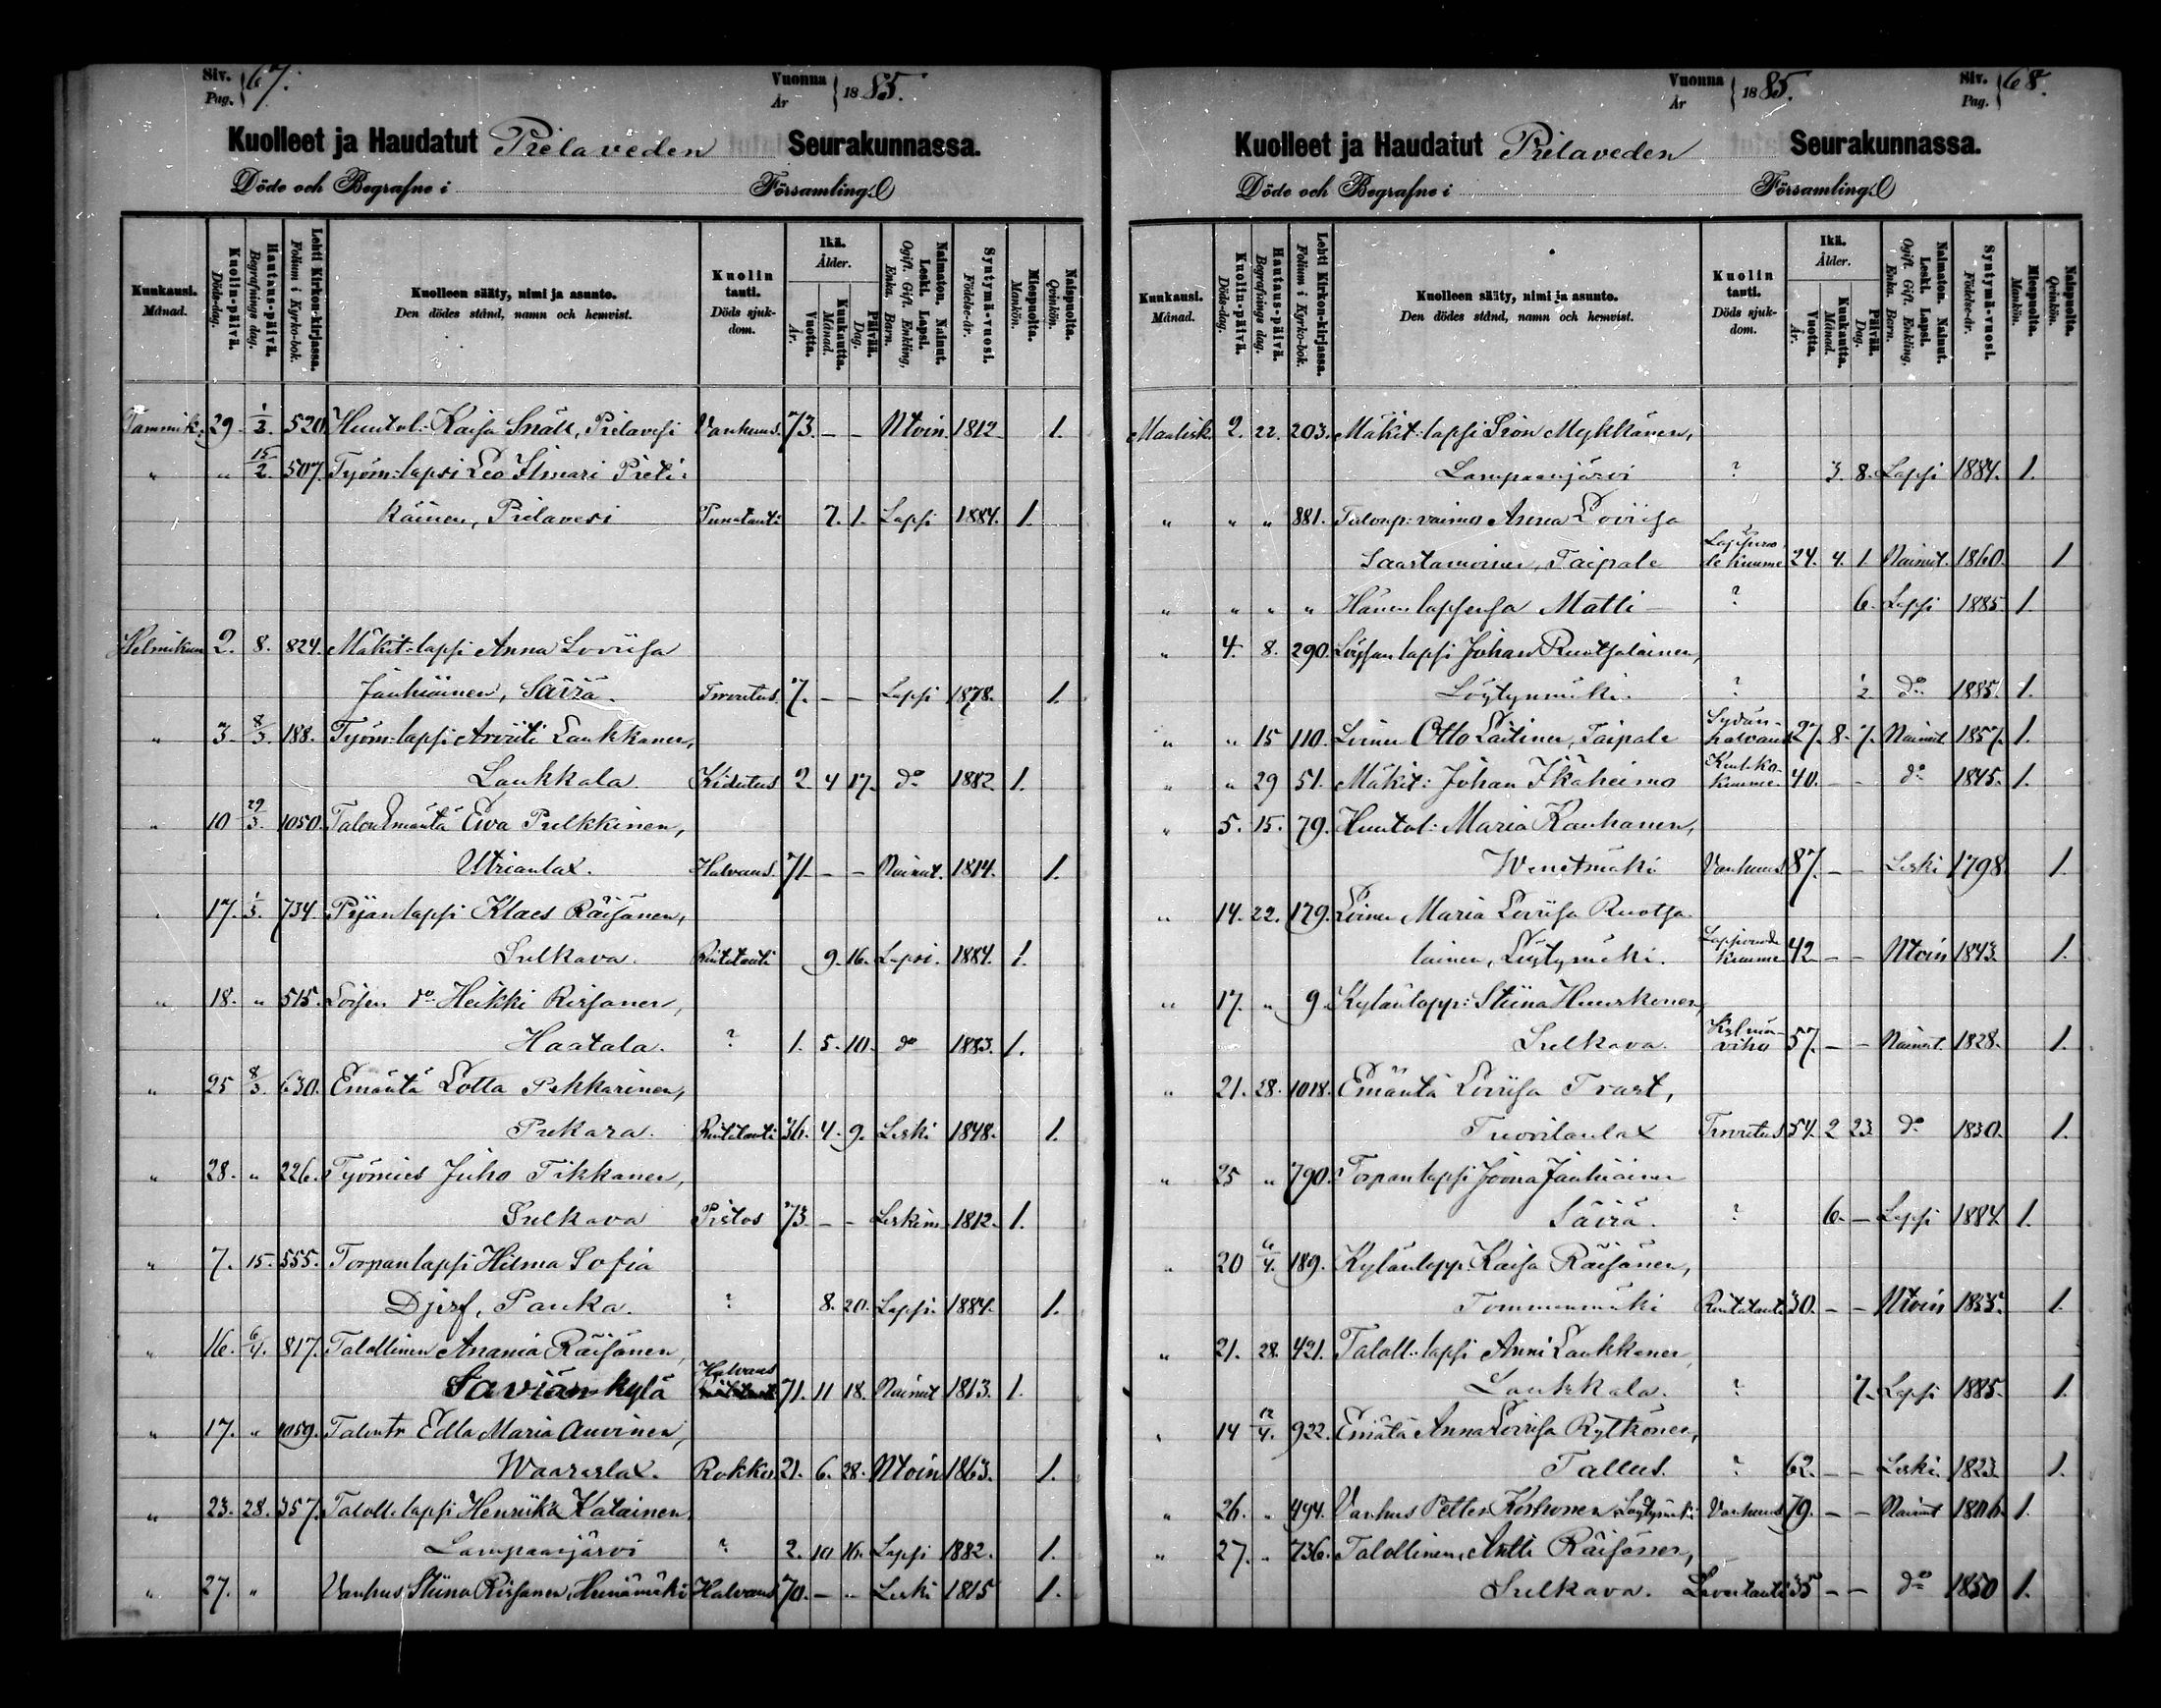 Siv. Pag. 67. Vuonna År 1885.
Kuolleet ja Haudatut Pielaveden Seurakunnassa.
Döde och Begrafne i Församling.
Kuukausi. Månad.
Kuolin-päivä. Döds-dag.
Hautaus-päivä. Begrafnings dag.
Lehti Kirkon-kirjassa. Folium i Kyrko-bok.
Kuolleen sääty, nimi ja asunto. Den dödes stånd, namn och hemvist.
Kuolin tauti. Döds sjuk-dom.
Ikä. Ålder.
Vuotta. År.
Kuukautta. Månad.
Päivää. Dag.
Naimaton. Nainut. Leski. Lapsi. Ogift. Gift. Enkling, Enka. Barn.
Syntymä-vuosi. Födelse-år.
Miespuolta. Mankön.
Naispuolta. Qvinkön.
Tammik. 29. 1/3. 520. Huutol: Kaisa Snäll, Pielavesi Vanhuus. 73. – – Ntoin 1812. 1.
" " 15/2. 507. Työm: lapsi Leo Ilmari Pieti-
käinen, Pielavesi Punatauti 7. 1. Lapsi 1884. 1.
Helmikuu 2. 8. 824. Mäkit: lapsi Anna Loviisa
Jauhiainen, Säviä. Turvotus 7. – – Lapsi 1878. 1.
" 3. 8/3. 188. Työm: lapsi Arviiti Laukkanen,
Laukkala. Kidutus 2. 4 17. do 1882. 1.
" 10 29/3. 1050. Talon Emäntä Eva Pulkkinen,
Utrianlax. Halvaus. 71. – – Nainut. 1814. 1.
" 17. 1/3. 734 Piian lapsi Klaes Räisänen,
Sulkava. Riutatauti 9. 16. Lapsi. 1884. 1.
" 18. " 515. Loisen do Heikki Rissanen,
Haatala. ? 1. 5. 10. do 1883. 1.
" 25 8/3. 630. Emäntä Lotta Pekkarinen,
Pukara. Riutatauti 36. 4. 9. Leski 1848. 1.
" 28. " 226. Työmies Juho Tikkanen,
Sulkava Pistos 73. – – Leskim. 1812. 1.
" 7. 15. 555. Torpan lapsi Hilma Sofia
Djerf, Panka. ? 8. 20. Lapsi. 1884. 1.
" 16. 6/4. 817. Talollinen Anania Räisänen,
Saviän kylä Halvaus 71. 11 18. Nainut 1813. 1.
" 17. " 1059. Talontr Edla Maria Auvinen,
Waaraslax. Rokko 21. 6. 28. Ntoin 1863. 1.
" 23. 28. 357. Taloll. lapsi Henriika Katainen,
Lampaanjärvi ? 2. 10 16. Lapsi 1882. 1.
" 27. " Vanhus Stiina Rissanen, Heinämäki Halvaus 70. – – Leski 1815 1.
Vuonna År 1885. Siv. Pag. 68.
Kuolleet ja Haudatut Pielaveden Seurakunnassa.
Döde och Begrafne i Församling.
Kuukausi. Månad.
Kuolin-päivä. Döds-dag.
Hautaus-päivä. Begrafnings dag.
Lehti Kirkon-kirjassa. Folium i Kyrko-bok.
Kuolleen sääty, nimi ja asunto. Den dödes stånd, namn och hemvist.
Kuolin tauti. Döds sjuk-dom.
Ikä. Ålder.
Vuotta. År.
Kuukautta. Månad.
Päivää. Dag.
Naimaton. Nainut. Leski. Lapsi. Ogift. Gift. Enkling, Enka. Barn.
Syntymä-vuosi. Födelse-år.
Miespuolta. Mankön.
Naispuolta. Qvinkön.
Maalisk. 2. 22. 203. Mäkit: lapsi Sion Mykkänen,
Lampaanjärvi ? 3. 8. Lapsi 1884. 1.
" " " 881. Talonp: vaimo Anna Loviisa
Saastamoinen, Taipale Lapsivuodekuume 24. 4. 1. Nainut. 1860. 1
" " " " Hänen lapsensa Matti – ? 6. Lapsi 1885. 1.
" 4. 8. 290. Loisen lapsi Johan Ruotsalainen,
Löytynmäki. ? 1/2. do 1885. 1.
" " 15 110. Loinen Otto Laitinen, Taipale Sydän-halvaus 27. 8. 7. Nainut. 1857. 1.
" " 29 51. Mäkit: Johan Ikäheimo Keuhko-kuume. 40. – – do 1845. 1.
" 5. 15. 79. Huutol: Maria Kauhanen,
Wenetmäki Vanhuus 87. – – Leski 1798. 1.
" 14. 22. 179. Loinen Maria Loviisa Ruotsa-
lainen, Löytynmäki. Lapsivuodekuume 42 – – Ntoin 1843. 1.
" 17. " 9. Kylänlapp: Stiina Huuskonen,
Sulkava. Kylmänviha 57. – – Nainut. 1828. 1.
" 21. 28. 1018. Emäntä Loviisa Trast,
Tuovilanlax Turvotus 54. 2 23. do 1830. 1.
" 25 " 790. Torpan lapsi Joona Jauhiainen
Säviä. ? 6. – Lapsi 1884. 1.
" 20 6/4. 189. Kylänlapp: Kaisa Räisänen,
Tommunmäki Riutatauti 30. – – Ntoin 1855. 1.
" 21. 28. 421. Taloll: lapsi Anni Laukkanen,
Laukkala. ? 7. Lapsi 1885. 1.
" 14 12/4. 922. Emätä Anna Loviisa Rytkönen,
Tallus. ? 62. – – Leski. 1823. 1.
" 26. " 494. Vanhus Petter Korhonen, Löytynmäki Vanhuus 79. – – Nainut 1806. 1.
" 27. " 736. Talollinen, Antti Räisänen,
Sulkava. Lavantauti 35 – – do 1850 1.